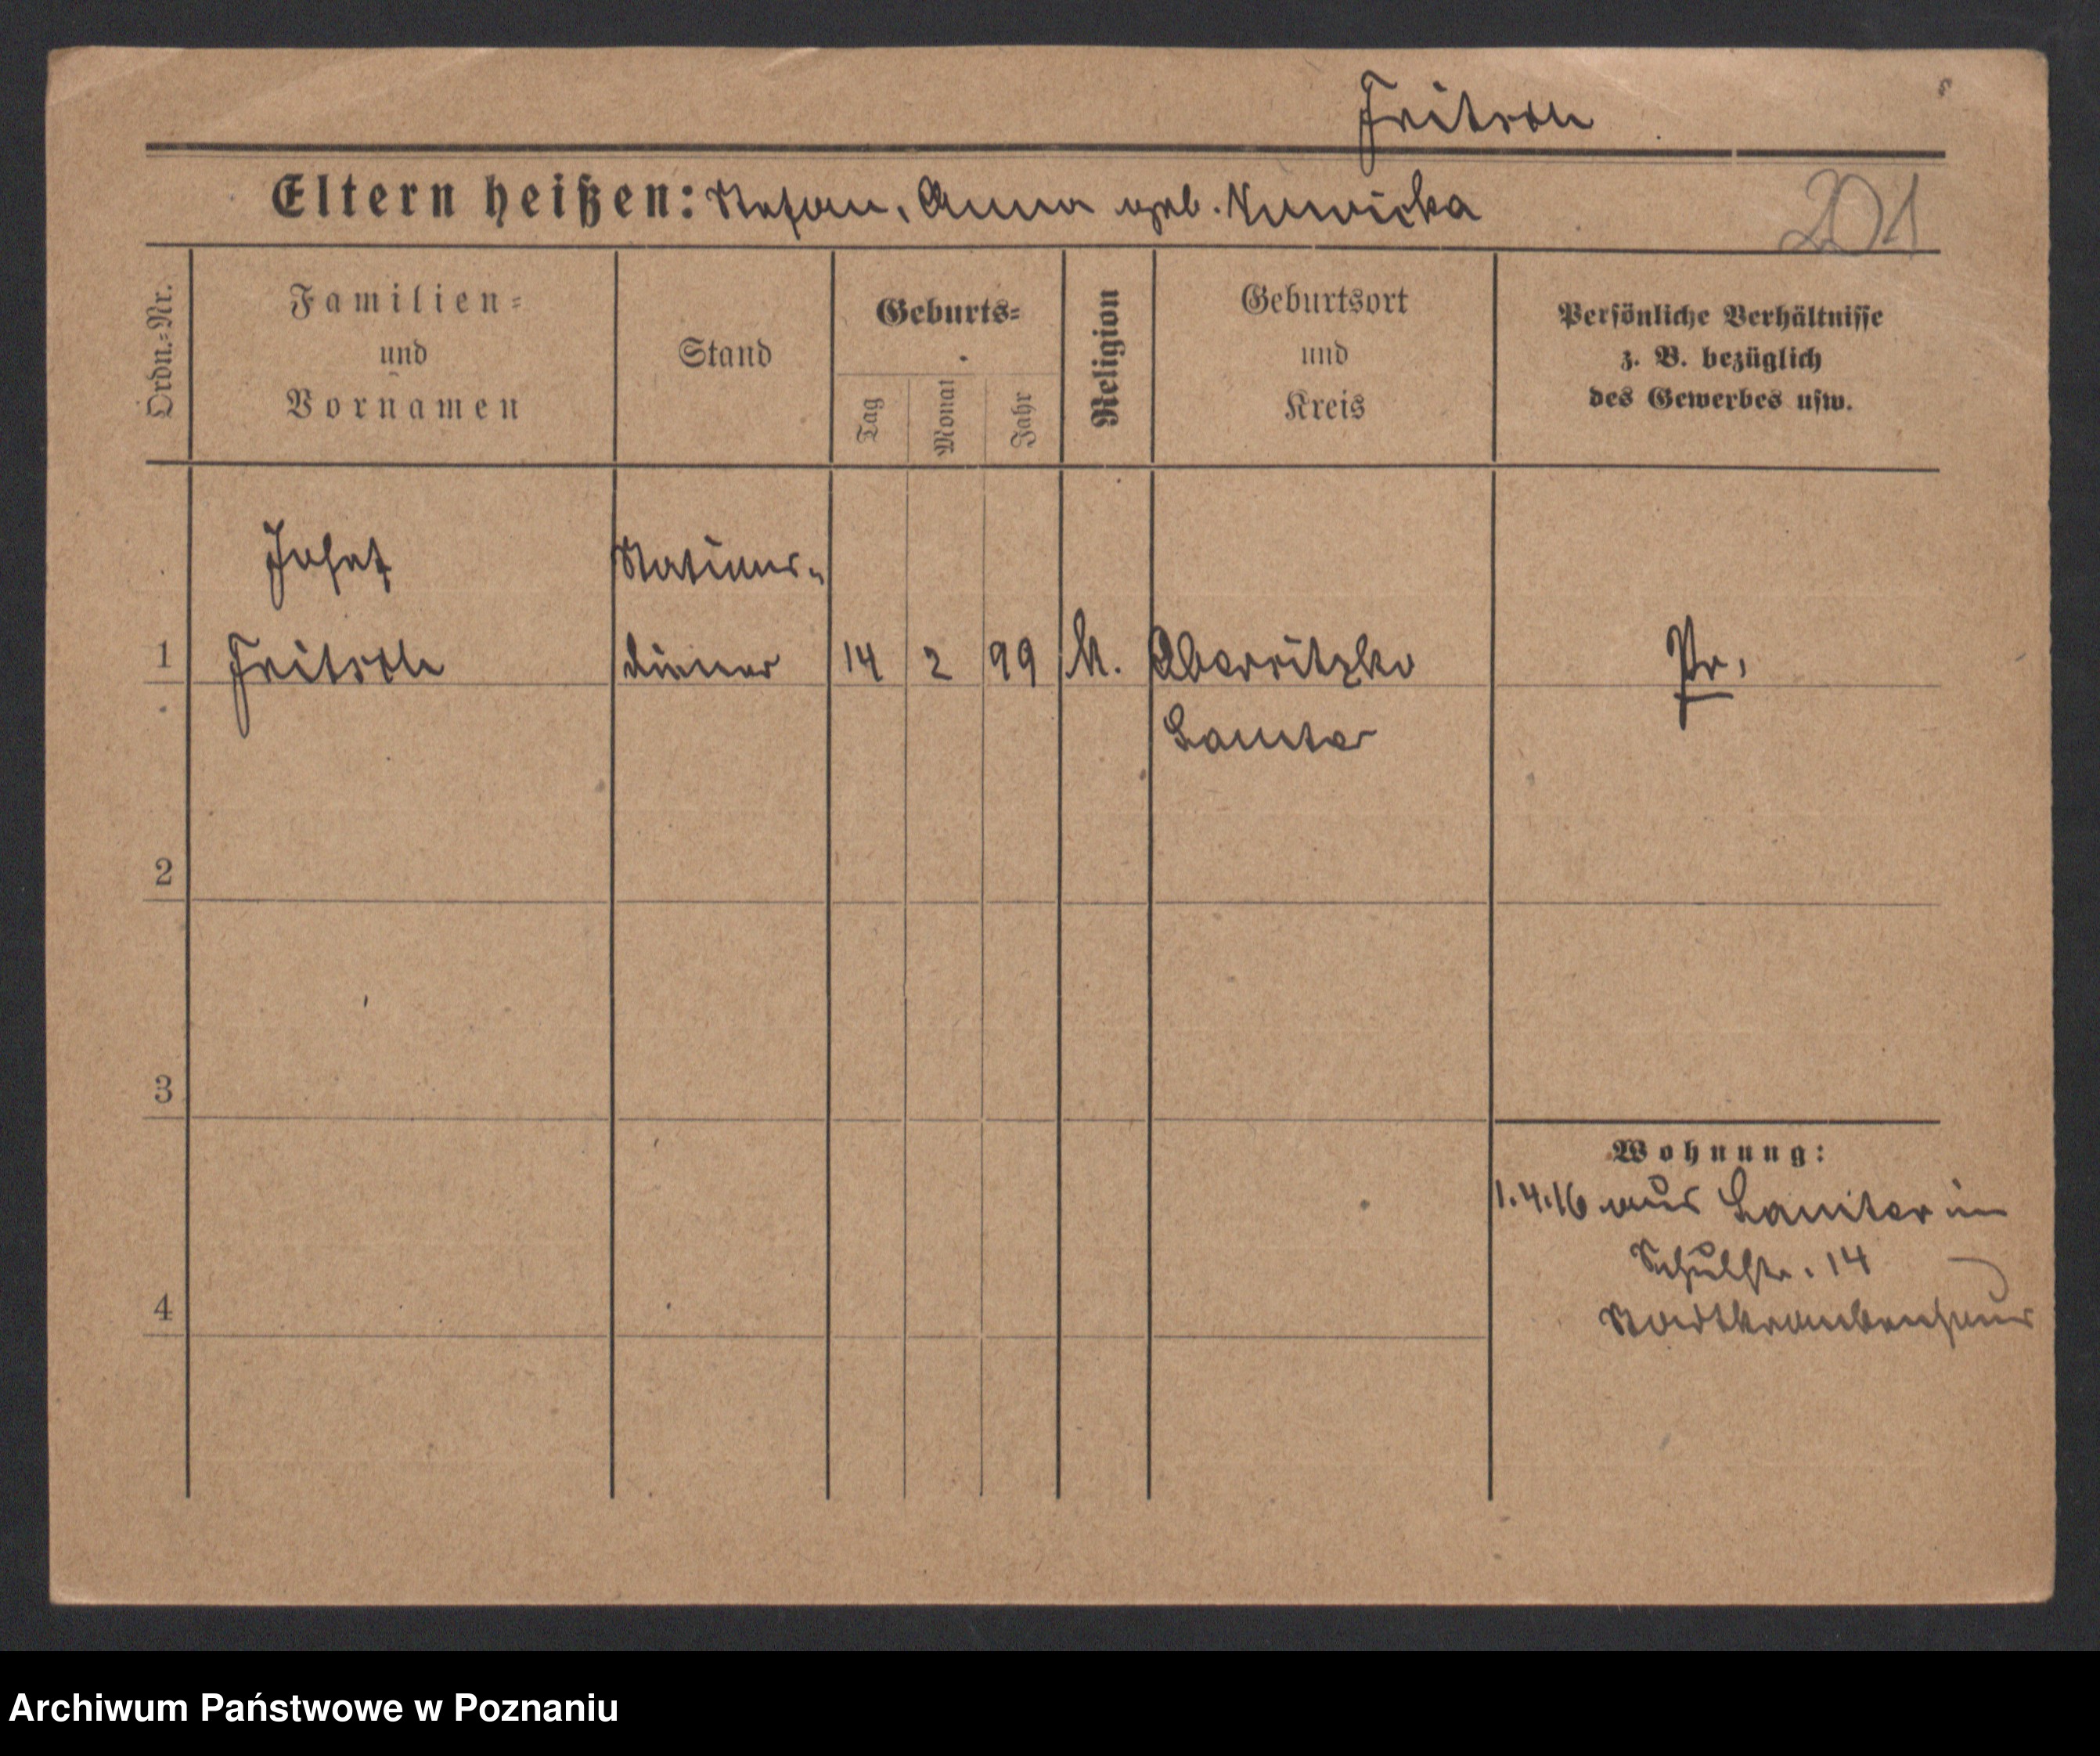 Fritsch
Eltern heißen: Stefan, Anna geb. Nowicka
201
Ordn.-Nr.
Familien-
und
Vornamen
Stand
Geburts-
Tag
Monat
Jahr
Religion
Geburtsort
und
Kreis
Persönliche Verhältnisse
z. B. bezüglich
des Gewerbes usw.
Josef
Fritsch
Stations-
diener
1
14
2
99
k.
Obersitzko
Samter
Pr.
2
3
4
Wohnung:
1.4.16 aus Samter in
Schulstr. 14
Stadtkrankenhaus
Archiwum Państwowe w Poznaniu